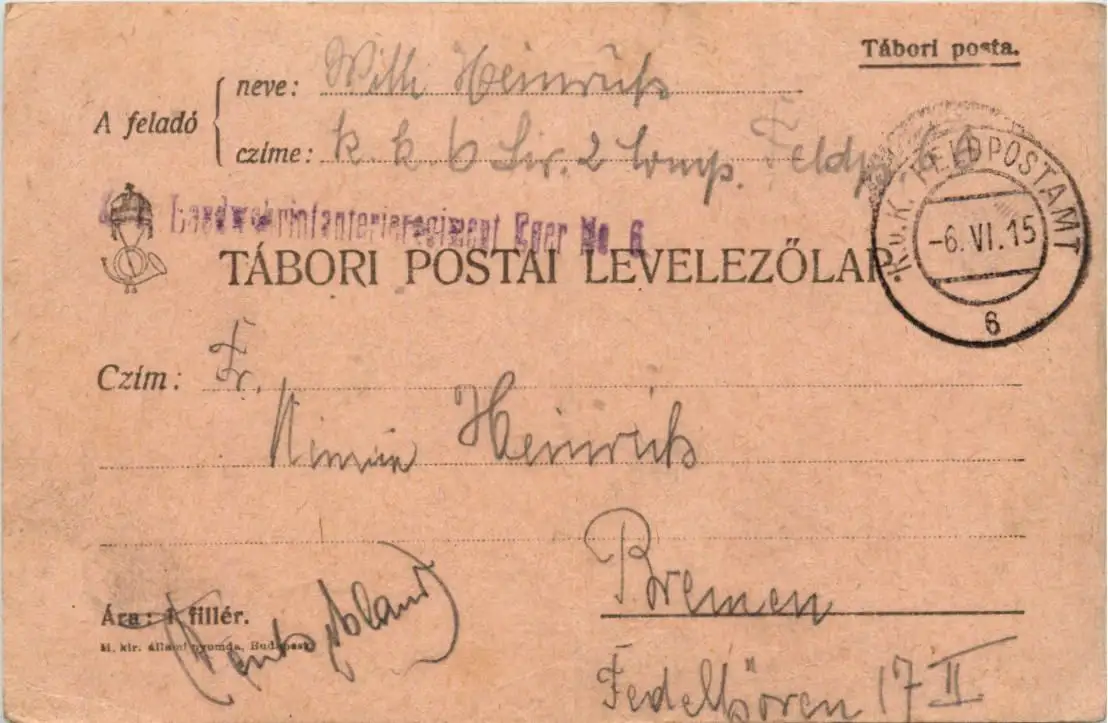 Tábori posta.
A feladó
neve: Willi Heinrich
czíme: k. k. 6 Lir. 2 Comp. Feldp. 64
K. u. K. FELDPOSTAMT
-6. VI. 15
6
Landwehrinfanterieregiment Eger No. 6
TÁBORI POSTAI LEVELEZŐLAP
Czím: Fr.
Heinrich
Bremen
Ára: 1 fillér.
(Deutschland)
M. kir. állami nyomda, Budapest
Fedelhören 17 II